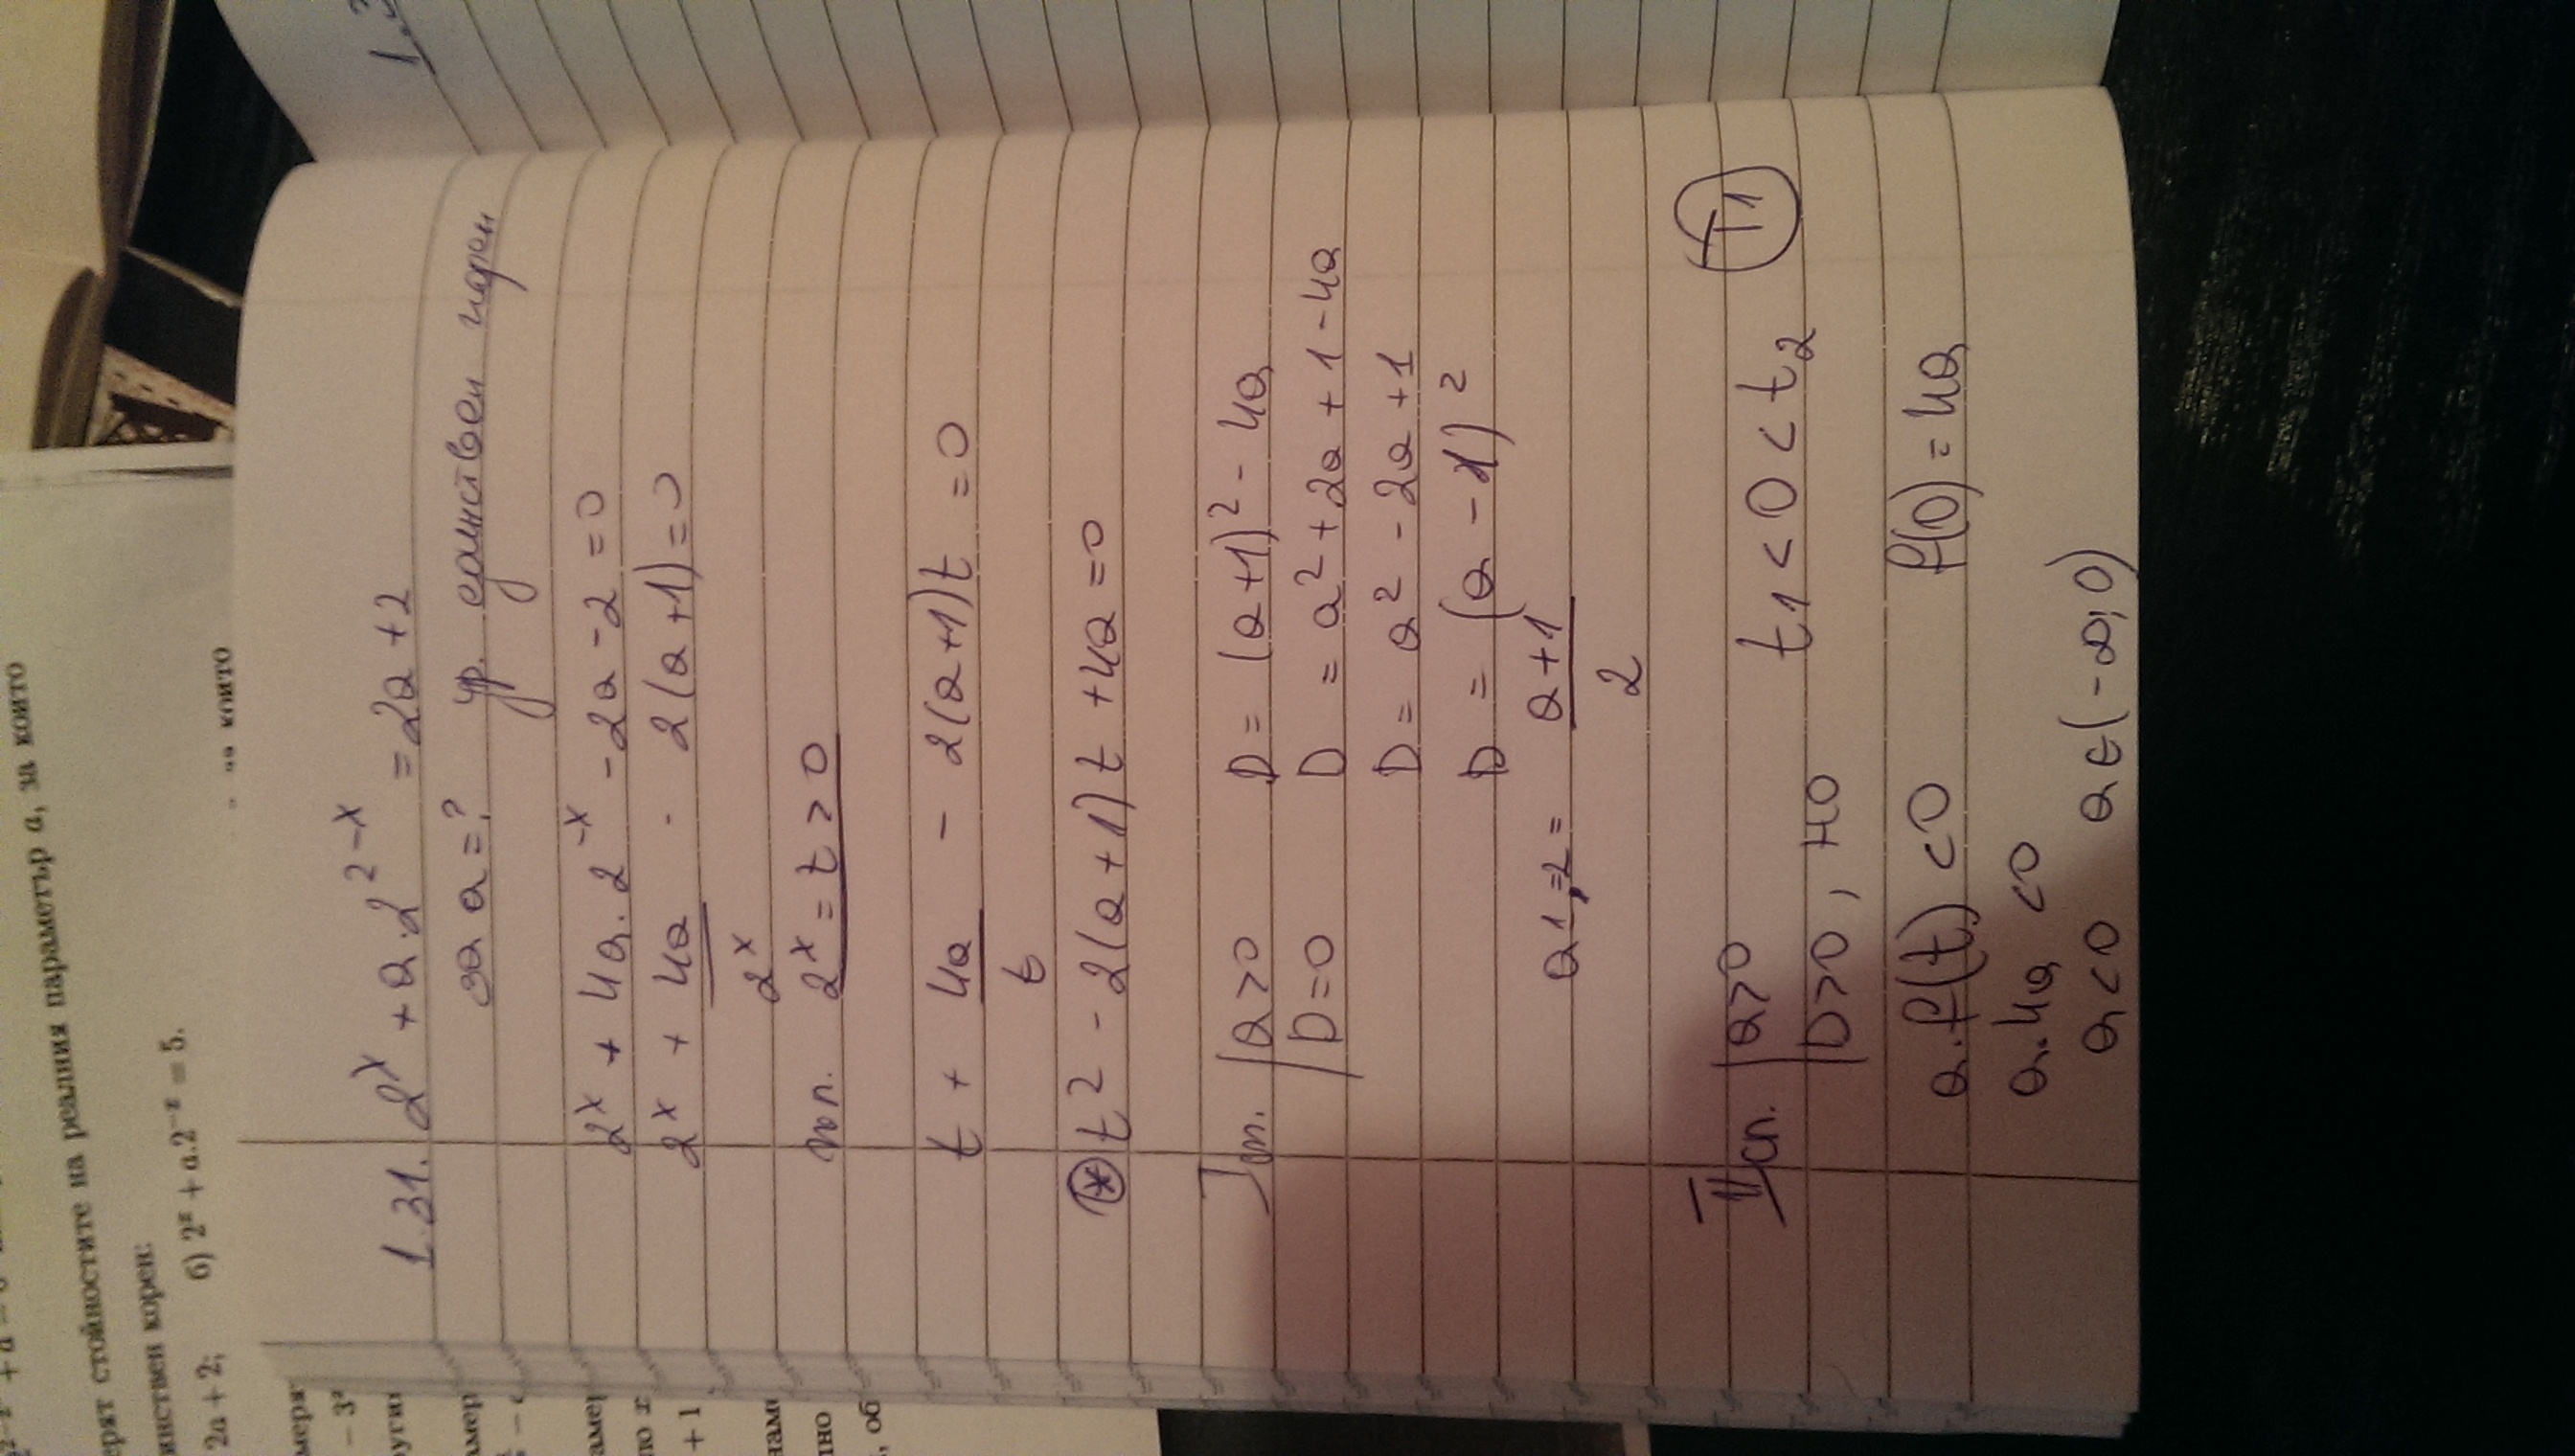 1.3
1.31. 2^x + a.2^{2-x} = 2a+2
за a=? ур. единствен корен
2^x + 4a.2^{-x} - 2a - 2 = 0
2^x + 4a/2^x - 2(a+1) = 0
пол. 2^x = t > 0
t + 4a/t - 2(a+1)t = 0
(*) t^2 - 2(a+1)t + 4a = 0
I сл. | a>0 D = (a+1)^2 - 4a
| D=0 D = a^2 + 2a + 1 - 4a
D = a^2 - 2a + 1
D = (a-1)^2
a1,2 = a+1/2
II сл. | a>0 t1 < 0 < t2 (T1)
| D>0, +10
a.f(t) < 0 f(0) = 4a
a.4a < 0
a<0 a∈(-∞;0)
+ a =
ерят стойностите на реалния параметър a, за които
инствен корен:
2a + 2; б) 2^x + a.2^{-x} = 5.
които
меря
угии
амер
амер
ло x
+ 1
нам
лно
, об